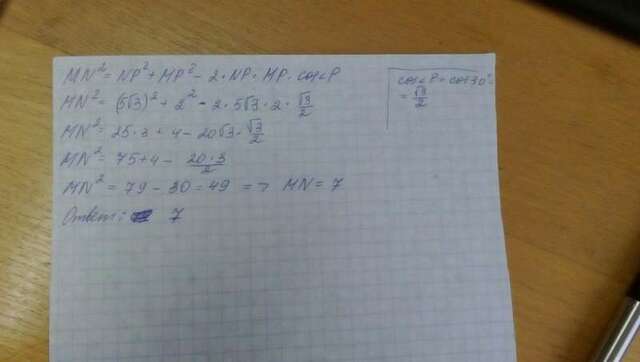 MN² = NP² + MP² - 2·NP·MP·cos∠P
MN² = (5√3)² + 2² - 2·5√3·2·√3/2
MN² = 25·3 + 4 - 20√3·√3/2
MN² = 75+4 - 20·3/2
MN² = 79 - 30 = 49 => MN = 7
Ответ: 7
cos∠P = cos30° =
= √3/2